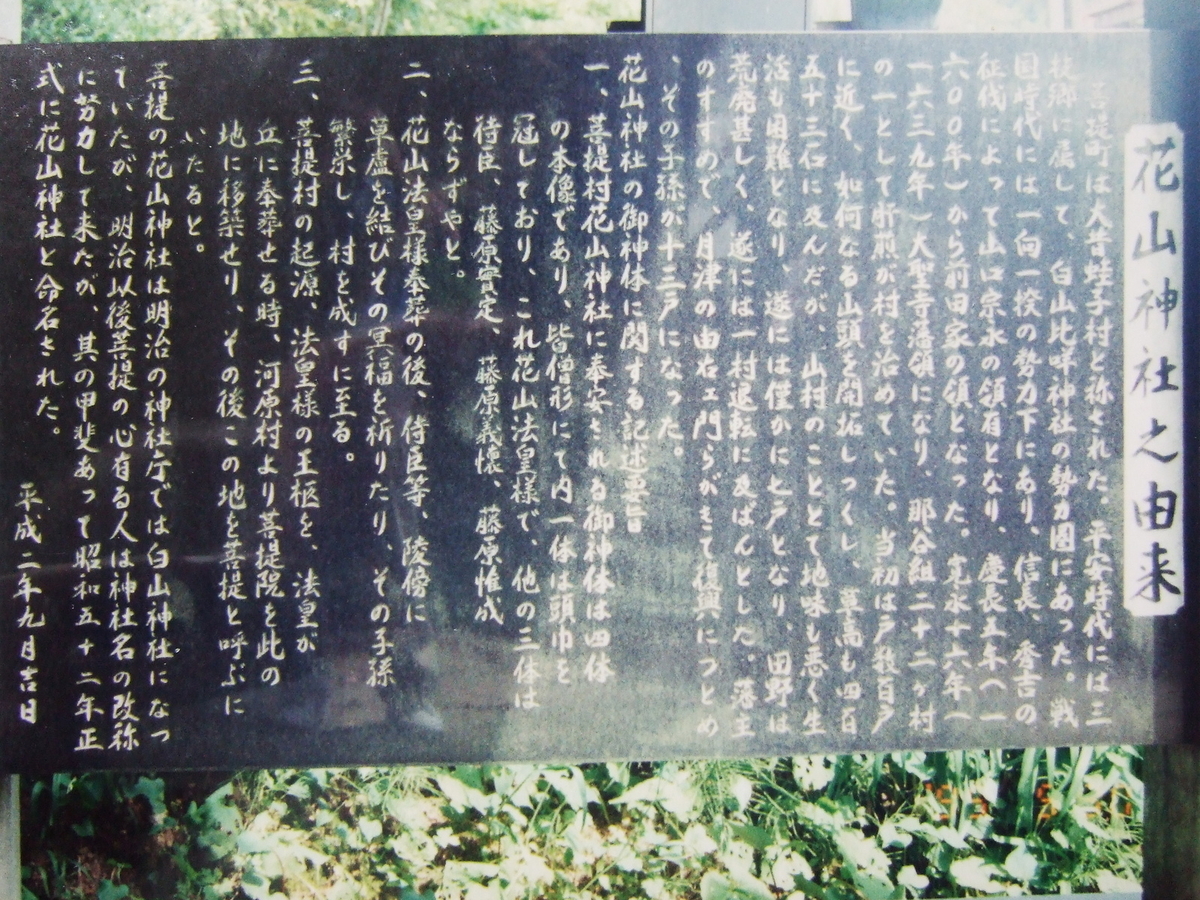 花山神社之由来
菩提町は大昔蛙子村と称された。平安時代には三
枝郷に属して、白山比咩神社の勢力圏にあった。戦
国時代には一向一揆の勢力下にあり、信長、秀吉の
征伐によって山口宗永の領有となり、慶長五年(一
六〇〇年)から前田家の領となった。寛永十六年(
一六三九年)大聖寺藩領になり、那谷組二十二ヶ村
の一として肝煎が村を治めていた。当初は戸数百戸
に近く、如何なる山頭を開拓しつくし、草高も四百
五十三石に及んだが、山村のこととて地味も悪く生
活も困難となり、遂には僅かに七戸となり、田野は
荒廃甚しく、遂には一村退転に及ばんとした。藩主
のすすめで、月津の由右ェ門らがきて復興につとめ
、その子孫が十三戸になった。
花山神社の御神体に関する記述要旨
一、菩提村花山神社に奉安される御神体は四体
の木像であり、皆僧形にて内一体は頭巾を
冠しており、これ花山法皇様で、他の三体は
待臣、藤原實定、藤原義懐、藤原惟成
ならずやと。
二、花山法皇様奉葬の後、侍臣等、陵傍に
草廬を結びその冥福を祈りたり、その子孫
繁栄し、村を成すに至る。
三、菩提村の起源、法皇様の王柩を、法皇が
丘に奉葬せる時、河原村より菩提院を此の
地に移築せり、その後この地を菩提と呼ぶに
いたると。
菩提の花山神社は明治の神社庁では白山神社になっ
ていたが、明治以後菩提の心有る人は神社名の改称
に努力して来たが、其の甲斐あって昭和五十二年正
式に花山神社と命名された。
平成二年九月吉日